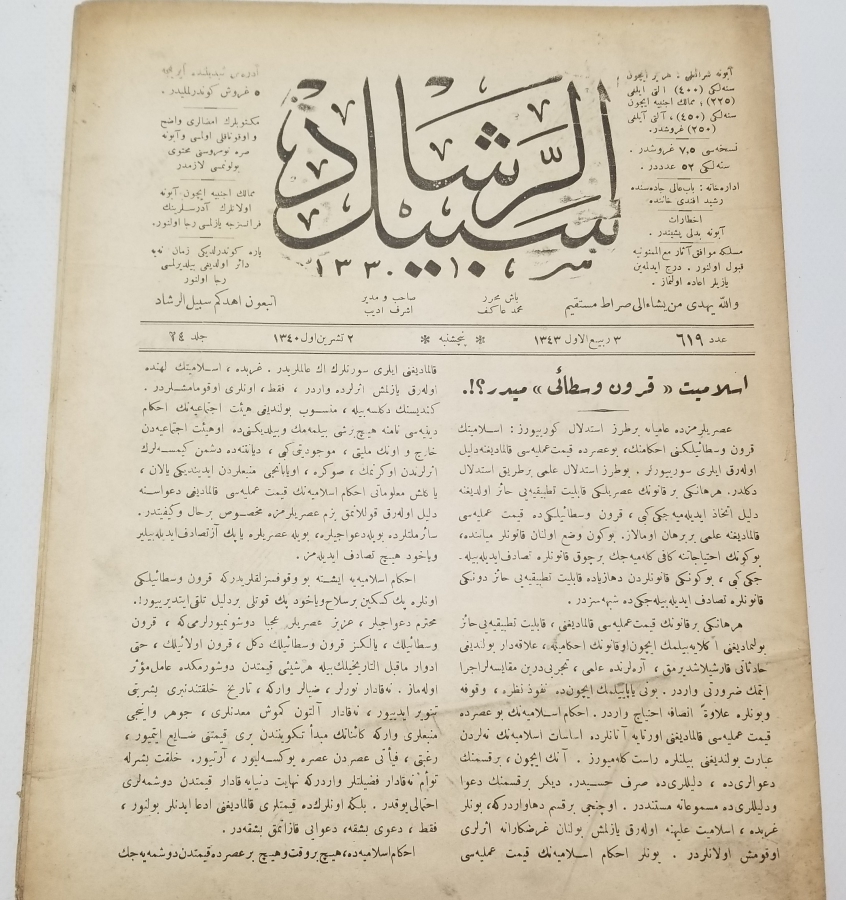 آبونه شرائطی : هر یر ایچون
سنه‌لکی (۴۰۰) ، آلتی آیلغی
(۲۲۵) ؛ ممالك اجنبیه ایچون
سنه‌لکی (۴۵۰) ، آلتی آیلغی
(۲۵۰) غروشدر.
نسخه‌سی ۷,۵ غروشدر .
سنه‌لکی ۵۲ عدددر .
اداره‌خانه : باب‌عالی جاده‌سنده
رشید افندی خاننده
اخطارات
آبونه بدلی پشیندر .
مسلکه موافق آثار مع‌الممنونیه
قبول اولنور . درج ایدلمه‌ین
یازیلر اعاده اولنماز .
سبیل الرشاد
۱۳۳۰
آدره‌س تبدیلنده آیریجه
۵ غروش کوندرلملیدر .
مکتوبلرك امضالری واضح
و اوقوناقلی اولمسی وآبونه
صره نومروسنی محتوی
بولونمسی لازمدر
ممالك اجنبیه ایچون آبونه
اولانلرك آدرسلرینك
فرانسزجه یازلمسی رجا اولنور.
پاره کوندرلدیکی زمان نه‌یه
دائر اولدیغی بیلدیرلمسی
رجا اولنور
والله یهدی من یشاء الی صراط مستقیم
باش محرر
محمد عاکف
صاحب و مدیر
اشرف ادیب
اتبعون اهدکم سبیل الرشاد
عدد ۶۱۹
۳ ربیع الاول ۱۳۴۳
پنجشنبه
۲ تشرین اول ۱۳۴۰
جلد ۲۴
اسلامیت « قرون وسطائی » میدر؟!.
عصریلرمزده عامیانه برطرز استدلال کوریییورز : اسلامیتك
قرون وسطائیلکنی احکامنك، بوعصرده قیمت عملیه‌سی قالمادیغنه دلیل
اوله‌رق ایلری سوریییورلر . بوطرز استدلال علمی برطریق استدلال
دکلدر. هرهانکی برقانونك عصریلکی قابلیت تطبیقیه‌یی حائز اولدیغنه
دلیل اتخاذ ایدیله‌میه‌جکی کبی ، قرون وسطائیلکی‌ده قیمت عملیه‌سی
قالمادیغنه علمی بربرهان اوماز. بوکون وضع اولنان قانونلر میاننده،
بوکونك احتیاجاتنه کافی کله‌میه‌جك برچوق قانونلره تصادف ایدیله‌بیله‌-
جکی کبی ، بوکونکی قانونلردن دهازیاده قابلیت تطبیقیه‌یی حائز دونکی
قانونلره تصادف ایدیله‌بیله‌جکی‌ده شبهه‌سزدر .
هرهانکی برقانونك قیمت عملیه‌سی قالمادیغنی ، قابلیت تطبیقیه‌یی حائز
بولنمادیغنی آکلایه‌بیلمك ایچون اوقانونك احکامیله، علاقه‌دار بولندیغی
حادثاتی قارشیلاشدیرمق ، آره‌لرنده علمی ، تجربی درین مقایسه‌لر اجرا
ایتمك ضرورتی واردر . بونی یاپابیلمك ایچون‌ده نفوذ نظره ، وقوفه
وبونلره علاوةً انصافه احتیاج واردر . احکام اسلامیه‌نك بوعصرده
قیمت عملیه‌سی قالمادیغنی اورتایه آتانلرده اساسات اسلامیه‌نك نه‌لردن
عبارت بولندیغنی بیلنلره راست کله‌میورز . آنك ایچون ، برقسمنك
دعوالری‌ده ، دلیللری‌ده صرف حسیدر. دیکر برقسمنك دعوا
ودلیللری‌ده مسموعاته مستنددر . اوچنجی برقسم دهاواردرکه، بونلر
غربده ، اسلامیت علیهنه اوله‌رق یازلمش بولنان غرضکارانه اثرلری
اوقومش اولانلردر . بونلر احکام اسلامیه‌نك قیمت عملیه‌سی
قالمادیغنی ایلری سورنلرك اك عالملریدر . غربده ، اسلامیتك لهنده
اوله‌رق یازلمش اثرلرده واردر ، فقط ، اونلری اوقومامشلردر .
کندیسنك دکلسه‌بیله ، منسوب بولندیغی هیئت اجتماعیه‌نك احکام
دینیه‌سی نامنه هیچ‌برشی بیلمه‌مك وبیلدیکنی‌ده اوهیئت اجتماعیه‌دن
خارج و اونك ملیتی ، موجودیتی کبی ، دیانتنه‌ده دشمن کیمسه‌لرك
اثرلرندن اوکرنمك ، صوکره ، اویابانجی منبعلردن ایدیندیکی یالان ،
یاکلش معلوماتی احکام اسلامیه‌نك قیمت عملیه‌سی قالمادیغی دعواسنه
دلیل اوله‌رق قوللانمق بزم عصریلرمزه مخصوص برحال وکیفیتدر.
سائرملتلرده بویله‌دعواجیلره، بویله عصریلره یاپك آزتصادف‌ایدیله‌بیلیر
ویاخود هیچ تصادف ایدیله‌مز.
احکام اسلامیه‌یه ایشته بو وقوفسزلقلریدرکه قرون وسطائیلکی
اونلره پك کسکین برسلاح ویاخود پك قوتلی بردلیل تلقی‌ایتدیرییور!.
محترم دعواجیلر ، عزیز عصریلر عجبا دوشونمیورلرمی‌که ، قرون
وسطائیلك ، یالکز قرون وسطائیلك دکل ، قرون اولائیلك ، حتی
ادوار ماقبل التاریخیلك‌بیله هرشیئی قیمتدن دوشورمکده عامل‌مؤثر
اوله‌ماز . نه‌قادار نورلر ، ضیالر وارکه ، تاریخ خلقتندنبری بشریتی
تنویر ایدییور ، نه‌قادار آلتون کموش معدنلری ، جوهر واینجی
منبعلری وارکه کائناتك مبدأ تکویننندن بری قیمتنی ضایع ایتمیور ،
رغبتی ، فیأتی عصردن عصره یوکسه‌لیور ، آرتییور. خلقت بشرله
توأم نه‌قادار فضیلتلر واردرکه نهایت دنیایه‌قادار قیمتدن دوشمه‌لری
احتمالی‌یوقدر . بلکه اونلرك‌ده قیمتلری قالمادیغنی ادعا ایدنلر بولنور ،
فقط ، دعوی بشقه، دعوایی قازانمق بشقه‌در.
احکام اسلامیه‌ده، هیچ‌بروقت وهیچ‌برعصرده‌قیمتدن‌دوشمه‌یه‌جك